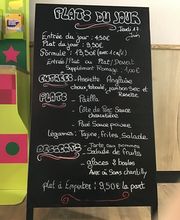 PLATS DU JOUR
Jeudi 17
Juin
Entrée du jour: 4,50€
Plat du jour: 9,50€
Formule: 13,50€ avec (1 café)
Entrée/Plat ou Plat/Dessert
Supplément Fromage: 4,00€
ENTRÉES - Assiette Anglaise
chaux, tataoulé, jambon sec et
Rosette
PLATS - Paëlla
- Côte de Porc Sauce
charcutière
- Pavé Sauce poivre
légumes: Tajine, frites, Salade
DESSERTS - Tarte aux pommes
- Salade de fruits
- glaces 3 boules
Avec ou Sans chantilly
plat à Emporter: 9,50€ la part